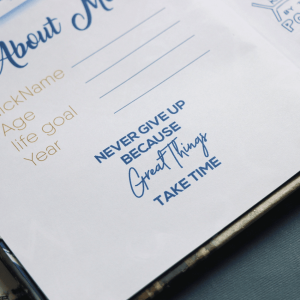 About M
ickName
Age
life goal
Year
NEVER GIVE UP
BECAUSE
Great Things
TAKE TIME
BY